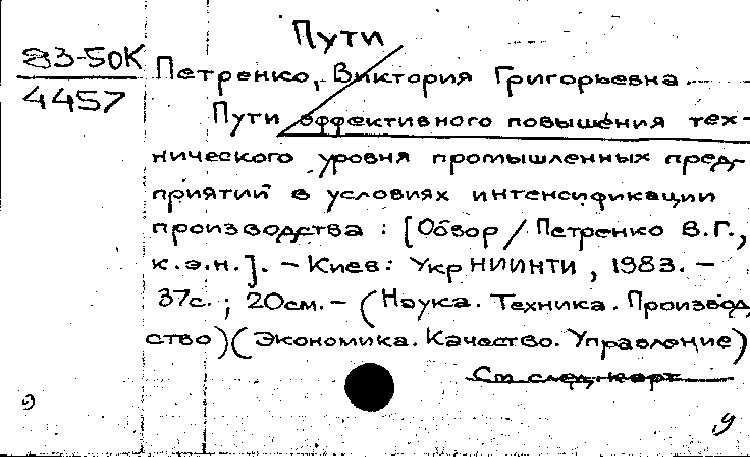 Пути
83-50К
4457
Петренко, Виктория Григорьевна
Пути эффективного повышения тех-
нического уровня промышленных пред-
приятий в условиях интенсификации
производства : [Обзор / Петренко В.Г.,
к.э.н.]. – Киев: УкрНИИНТИ, 1983. –
37с. ; 20см. – (Наука. Техника. Производ-
ство) (Экономика. Качество. Управление)
См след. карт
9
9